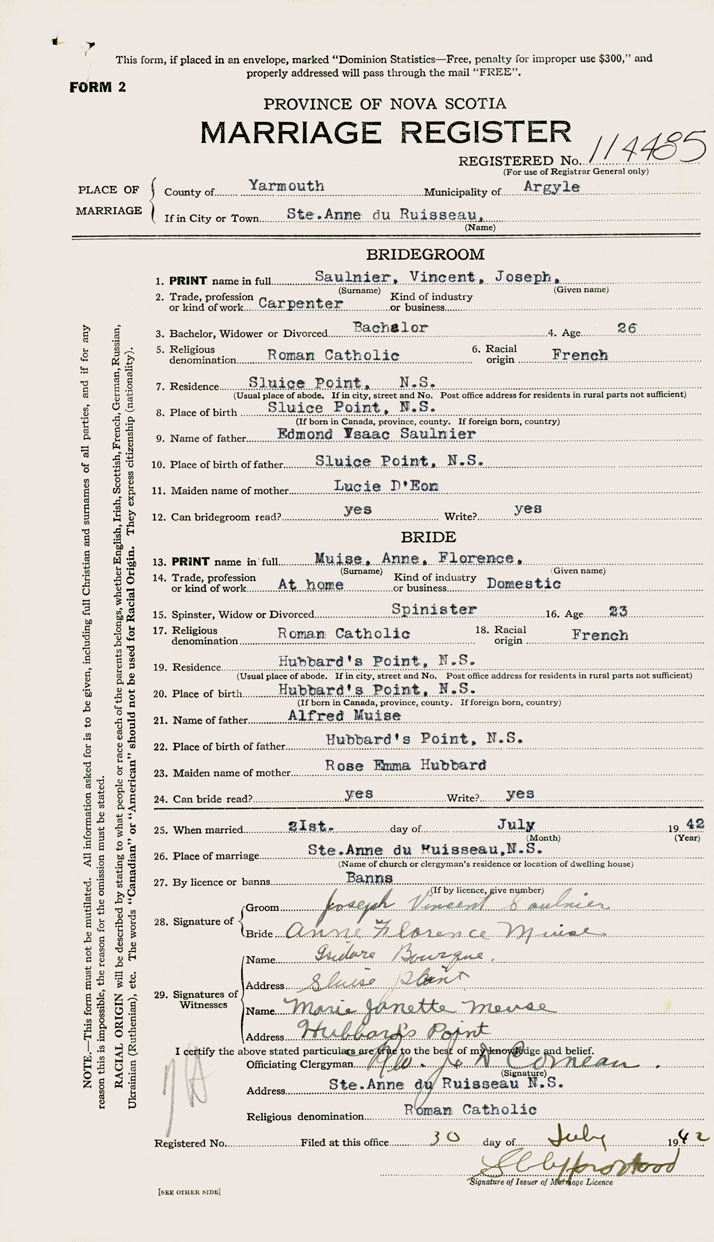 This form, if placed in an envelope, marked "Dominion Statistics—Free, penalty for improper use $300," and
properly addressed will pass through the mail "FREE".
FORM 2
PROVINCE OF NOVA SCOTIA
MARRIAGE REGISTER
REGISTERED No. 114485
(For use of Registrar General only)
PLACE OF MARRIAGE
County of Yarmouth Municipality of Argyle
If in City or Town Ste.Anne du Ruisseau,
(Name)
BRIDEGROOM
1. PRINT name in full Saulnier, Vincent, Joseph,
(Surname) (Given name)
2. Trade, profession or kind of work Carpenter Kind of industry or business
3. Bachelor, Widower or Divorced Bachelor 4. Age 26
5. Religious denomination Roman Catholic 6. Racial origin French
7. Residence Sluice Point, N.S.
(Usual place of abode. If in city, street and No. Post office address for residents in rural parts not sufficient)
8. Place of birth Sluice Point, N.S.
(If born in Canada, province, county. If foreign born, country)
9. Name of father Edmond Ysaac Saulnier
10. Place of birth of father Sluice Point, N.S.
11. Maiden name of mother Lucie D'Eon
12. Can bridegroom read? yes Write? yes
BRIDE
13. PRINT name in full Muise, Anne, Florence,
(Surname) (Given name)
14. Trade, profession or kind of work At home Kind of industry or business Domestic
15. Spinster, Widow or Divorced Spinister 16. Age 23
17. Religious denomination Roman Catholic 18. Racial origin French
19. Residence Hubbard's Point, N.S.
(Usual place of abode. If in city, street and No. Post office address for residents in rural parts not sufficient)
20. Place of birth Hubbard's Point, N.S.
(If born in Canada, province, county. If foreign born, country)
21. Name of father Alfred Muise
22. Place of birth of father Hubbard's Point, N.S.
23. Maiden name of mother Rose Emma Hubbard
24. Can bride read? yes Write? yes
25. When married 21st. day of July 19 42
(Month) (Year)
26. Place of marriage Ste.Anne du Ruisseau,N.S.
(Name of church or clergyman's residence or location of dwelling house)
27. By licence or banns Banns
(If by licence, give number)
28. Signature of
Groom Joseph Vincent Saulnier
Bride Anne Florence Muise
29. Signatures of Witnesses
Name Isidore Bourque.
Address Sluise Point
Name Marie Janette Meuse
Address Hubbard's Point
I certify the above stated particulars are true to the best of my knowledge and belief.
Officiating Clergyman Comeau.
(Signature)
Address Ste.Anne du Ruisseau N.S.
Religious denomination Roman Catholic
Registered No. Filed at this office 30 day of July 1942
Signature of Issuer of Marriage Licence
[SEE OTHER SIDE]
NOTE.—This form must not be mutilated. All information asked for is to be given, including full Christian and surnames of all parties, and if for any
reason this is impossible, the reason for the omission must be stated.
RACIAL ORIGIN will be described by stating to what people or race each of the parents belongs, whether English, Irish, Scottish, French, German, Russian,
Ukrainian (Ruthenian), etc. The words "Canadian" or "American" should not be used for Racial Origin. They express citizenship (nationality).